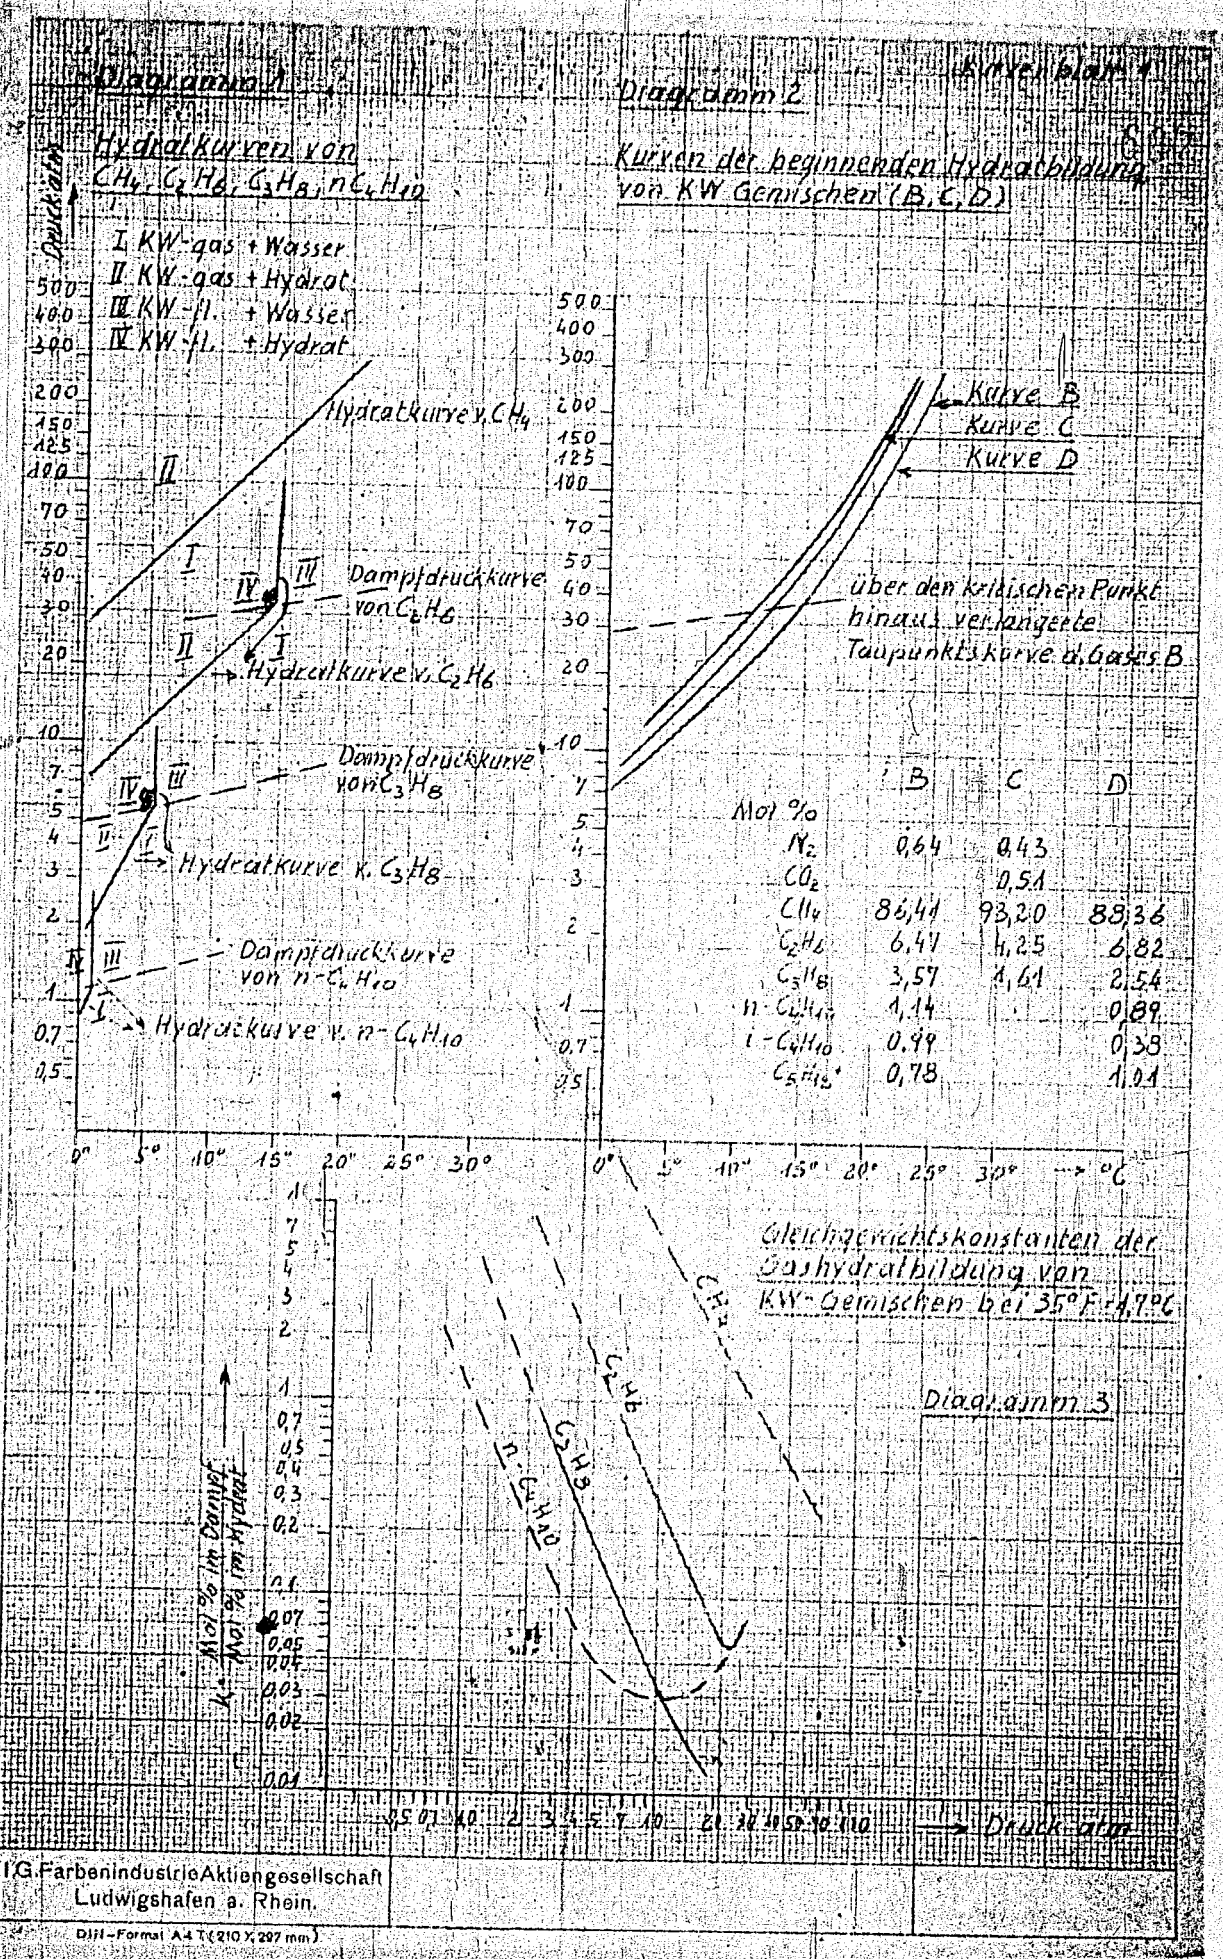 Diagramm 1
Hydratkurven von
CH4, C2H6, C3H8, nC4H10
Druck atm
I KW-gas + Wasser
II KW-gas + Hydrat
III KW-fl. + Wasser
IV KW-fl. + Hydrat
500
400
300
200
150
125
100
70
50
40
30
20
10
7
5
4
3
2
1
0,7
0,5
Hydratkurve v. CH4
II
I
IV
III
Dampfdruckkurve
von C2H6
II
I
Hydratkurve v. C2H6
Dampfdruckkurve
von C3H8
IV
III
II
I
Hydratkurve v. C3H8
IV
III
Dampfdruckkurve
von n-C4H10
I
Hydratkurve v. n-C4H10
0° 5° 10° 15° 20° 25° 30°
Kurvenblatt 1
Diagramm 2
Kurven der beginnenden Hydratbildung
von KW Gemischen (B, C, D)
500
400
300
200
150
125
100
70
50
40
30
20
10
7
5
4
3
2
1
0,7
0,5
Kurve B
Kurve C
Kurve D
über den kritischen Punkt
hinaus verlängerte
Taupunktskurve d. Gases B
B C D
Mol %
N2 0,64 0,43
CO2 0,51
CH4 86,41 93,20 88,36
C2H6 6,47 4,25 6,82
C3H8 3,57 1,61 2,54
n-C4H10 1,14 0,89
i-C4H10 0,99 0,38
C5H12+ 0,78 1,01
0° 5° 10° 15° 20° 25° 30° → °C
Gleichgewichtskonstanten der
Gashydratbildung von
KW-Gemischen bei 35°F = 1,7°C
Diagramm 3
7
5
4
3
2
1
0,7
0,5
0,4
0,3
0,2
0,1
0,07
0,05
0,04
0,03
0,02
0,01
K = Mol % im Dampf
Mol % im Hydrat
CH4
C2H6
C2H8
n-C4H10
0,5 0,7 1,0 2 3 4 5 7 10 20 30 40 50 70 100
Druck atm
I.G. Farbenindustrie Aktiengesellschaft
Ludwigshafen a. Rhein.
DIN-Format A4 T (210 X 297 mm)